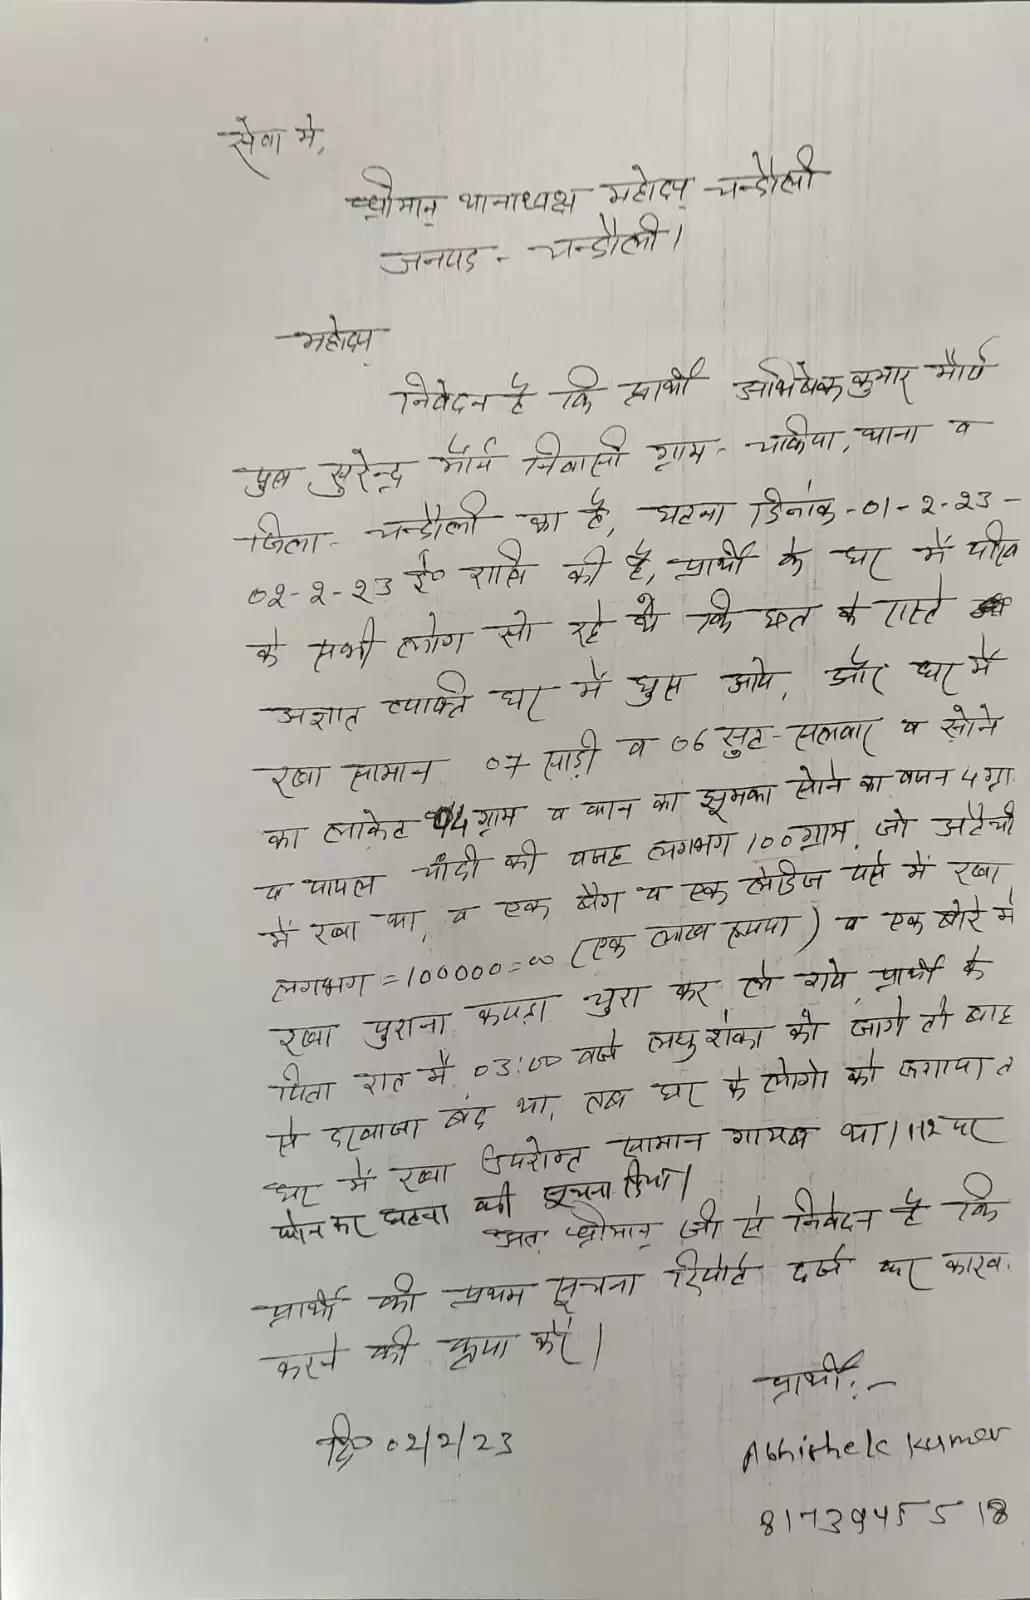 सेवा मे,
श्रीमान् थानाध्यक्ष महोदय चन्दौली
जनपद - चन्दौली।
महोदय
निवेदन है कि प्रार्थी अभिषेक कुमार मौर्य
पुत्र सुरेन्द्र मौर्य निवासी ग्राम - चकिया, थाना व
जिला - चन्दौली का है, घटना दिनांक - 01-2-23 -
02-2-23 ई० रात्रि की है, प्रार्थी के घर में
के सभी लोग सो रहे थे कि छत के रास्ते
अज्ञात व्यक्ति घर में घुस आये, और घर में
रखा सामान 07 साड़ी व 06 सुट-सलवार व सोने
का लाकेट 4 ग्राम व कान का झूमका सोने का वजन 4 ग्रा.
व पायल चाँदी की वजह लगभग 100 ग्राम, जो अटैची
में रखा था, व एक बैग व एक लेडिज पर्स में रखा
लगभग = 100000=00 (एक लाख रूपया) व एक बोरे में
रखा पुराना कपड़ा चुरा कर ले गये, प्रार्थी के
पिता रात में 03:00 बजे लघुशंका को जागे तो बाह
से दरवाजा बंद था, तब घर के लोगो को जगाया त
घर में रखा उपरोक्त सामान गायब था। 112 पर
फोन कर घटना की सूचना दिया।
अतः श्रीमान् जी से निवेदन है कि
प्रार्थी की प्रथम सूचना रिपोर्ट दर्ज कर कारव.
करने की कृपा करें।
प्रार्थी:-
दि० 02/2/23
Abhishek Kumar